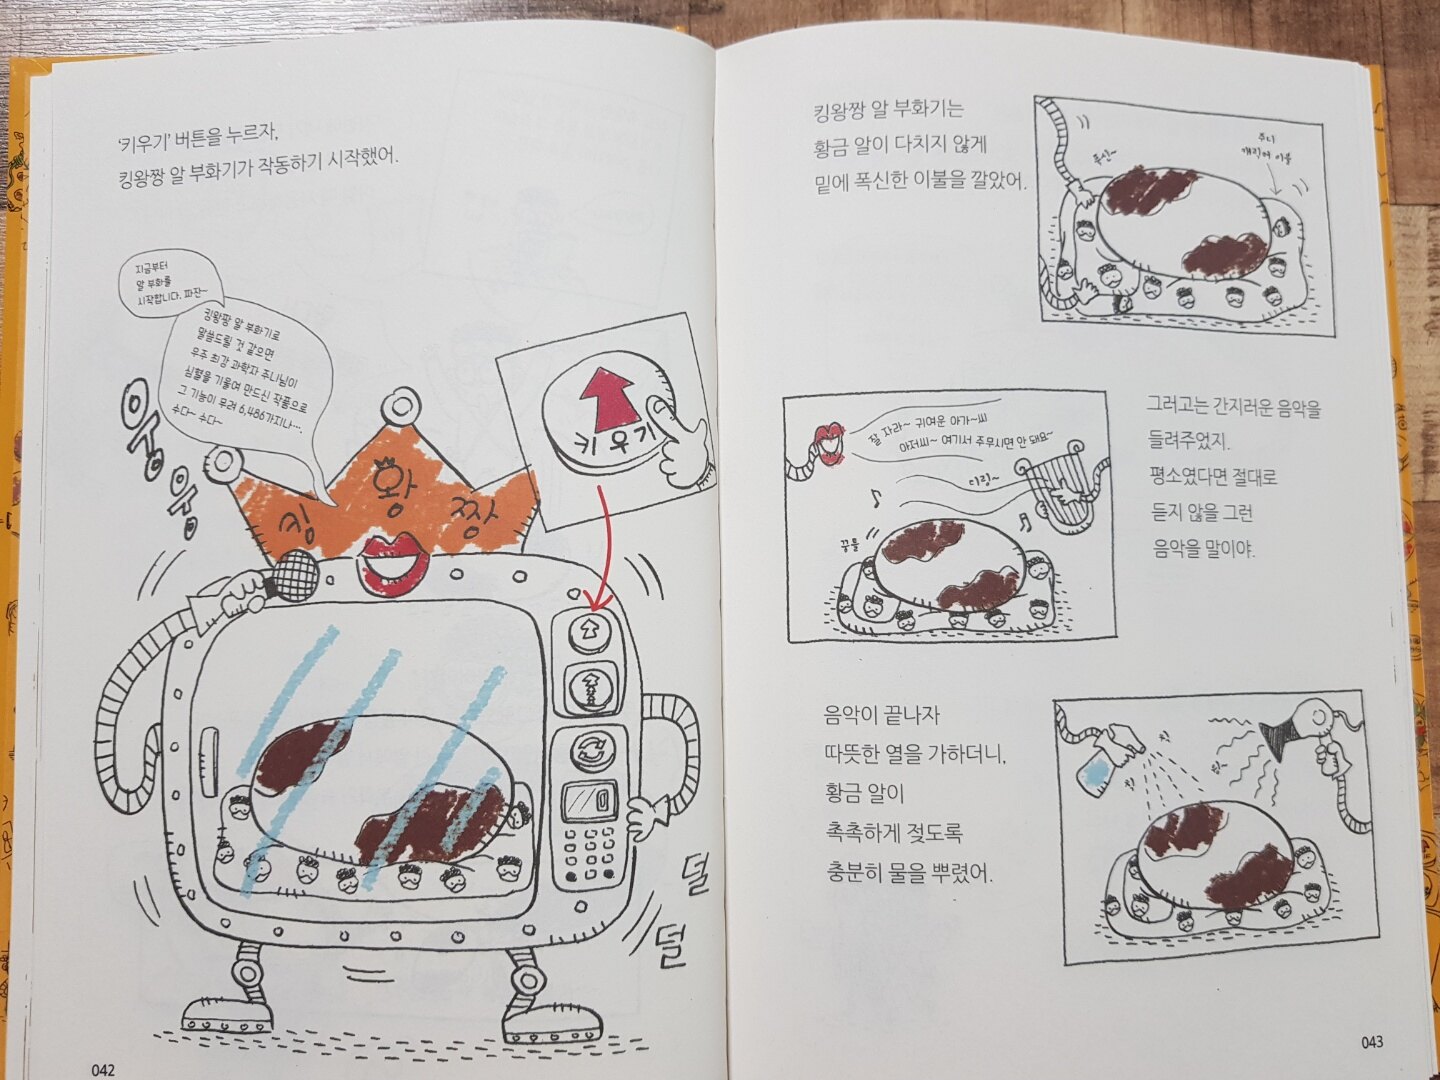 '키우기' 버튼을 누르자,
킹왕짱 알 부화기가 작동하기 시작했어.
지금부터
알 부화를
시작합니다. 파잔~
킹왕짱 알 부화기로
말씀드릴 것 같으면
우주 최강 과학자 주니님이
심혈을 기울여 만드신 작품으로
그 기능이 무려 6,486가지나….
수다~ 수다~
웅
웅
킹 왕 짱
키우기
덜
덜
042
킹왕짱 알 부화기는
황금 알이 다치지 않게
밑에 폭신한 이불을 깔았어.
푹신~
주니
캐릭터 이불
잘 자라~ 귀여운 아가~씨
아저씨~ 여기서 주무시면 안 돼요~
디링~
꿈틀
그러고는 간지러운 음악을
들려주었지.
평소였다면 절대로
듣지 않을 그런
음악을 말이야.
음악이 끝나자
따뜻한 열을 가하더니,
황금 알이
촉촉하게 젖도록
충분히 물을 뿌렸어.
043